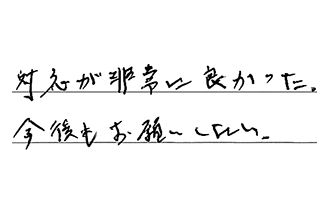 対応が非常に良かった。
今後もお願いしたい。